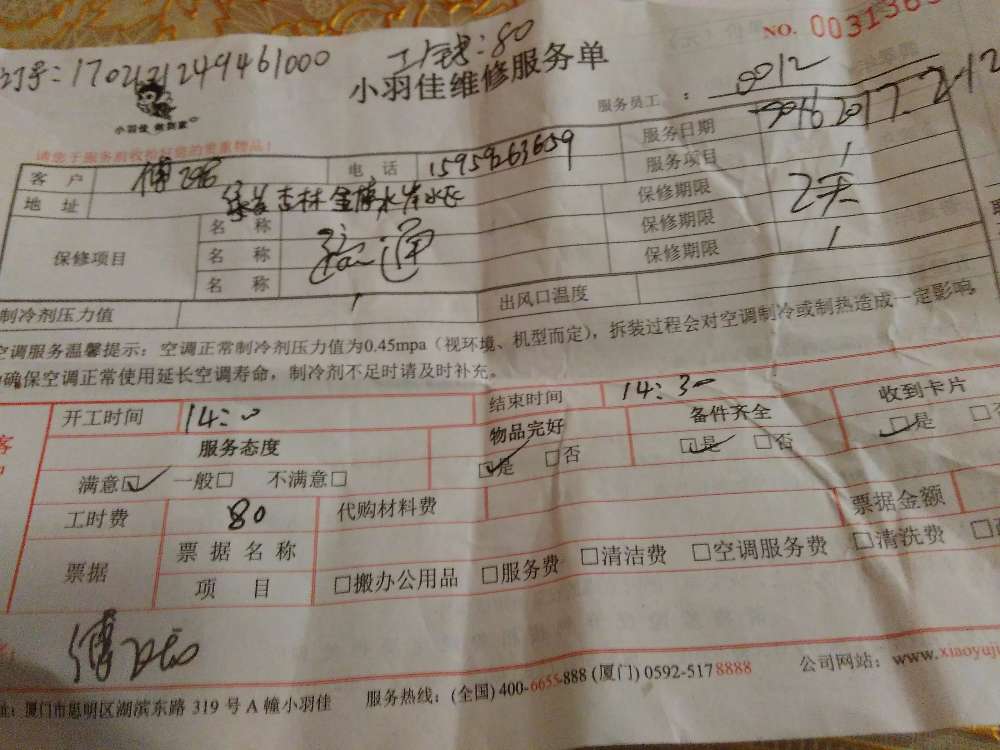 订号:170212149461000 工钱:80
NO. 0031363
小羽佳维修服务单
小羽佳 做到家
服务员工 : 0012
请您于服务前收拾好您的贵重物品!
客户 傅 电话 15959263659 服务日期 2017-2-12
地址 杏林 水岸 服务项目 /
保修项目 名称 保修期限 2天
名称 疏通 保修期限
名称 / 保修期限 /
制冷剂压力值 出风口温度
空调服务温馨提示:空调正常制冷剂压力值为0.45mpa(视环境、机型而定),拆装过程会对空调制冷或制热造成一定影响,
确保空调正常使用延长空调寿命,制冷剂不足时请及时补充。
开工时间 14:00 结束时间 14:30
服务态度 物品完好 备件齐全 收到卡片
满意☑ 一般□ 不满意□ ☑是 □否 ☑是 □否 ☑是 □
工时费 80 代购材料费 票据金额
票据 票据名称
项目 □搬办公用品 □服务费 □清洁费 □空调服务费 □清洗费
傅
址:厦门市思明区湖滨东路 319 号 A 幢小羽佳 服务热线:(全国) 400-6655-888 (厦门) 0592-5178888 公司网站:www.xiaoyuji